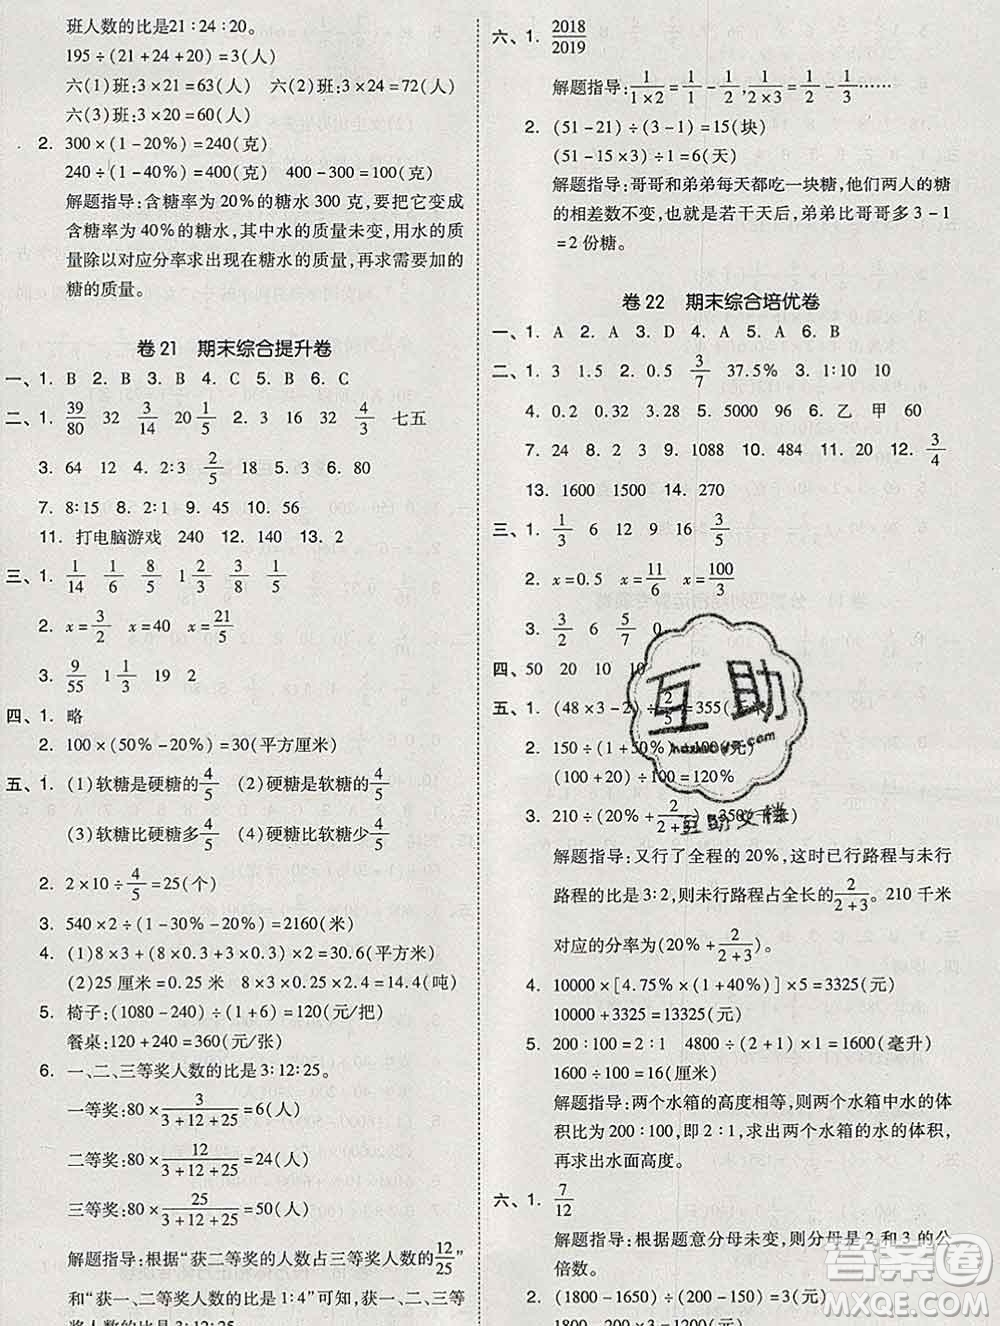 班人数的比是21:24:20。
195÷(21+24+20)=3(人)
六(1)班:3×21=63(人)　六(2)班:3×24=72(人)
六(3)班:3×20=60(人)
2. 300×(1-20%)=240(克)
240÷(1-40%)=400(克)　400-300=100(克)
解题指导:含糖率为20%的糖水300克,要把它变成
含糖率为40%的糖水,其中水的质量未变,用水的质
量除以对应分率求出现在糖水的质量,再求需要加
糖的质量。
卷21　期末综合提升卷
一、1. B　2. B　3. B　4. C　5. B　6. C
二、1. 39/80　32　3/14　20 1/5　2. 3　16　32　4/3　七五
3. 64　12　4. 2:3　2/5　5. 18　50　6. 80
7. 8:15　8. 2:1　9. 45　10. 56
11. 打电脑游戏　240　12. 140　13. 2
三、1. 1/14　1/6　8/5　1 1/8　1　21　1/5　4/81
2. x=3/2　x=40　x=21/5
3. 9/55　1 1/3　19　2
四、1. 略
2. 100×(50%-20%)=30(平方厘米)
五、1. (1)软糖是硬糖的4/5　(2)硬糖是软糖的4/5
(3)软糖比硬糖多4/5　(4)硬糖比软糖少4/5
2. 2×10÷4/5=25(个)
3. 540×2÷(1-30%-20%)=2160(米)
4. (1)8×3+(8×0.3+3×0.3)×2=30.6(平方米)
(2)25厘米=0.25米　8×3×2×0.3=14.4(吨)
5. 椅子:(1080-240)÷(1+6)=120(元/把)
餐桌:120+240=360(元/张)
6. 一、二、三等奖人数的比是3:12:25。
一等奖:80×3/(3+12+25)=6(人)
二等奖:80×12/(3+12+25)=24(人)
三等奖:80×25/(3+12+25)=50(人)
解题指导:根据“获二等奖的人数占三等奖人数的12/25”
和“获一、二等奖的人数比是1:4”可知,获一、二、三
等奖人数的比是3:12:25。
六、1. 2018/2019
解题指导:1/(1×2)=1/1-1/2,1/(2×3)=1/2-1/3……
2. (51-21)÷(3-1)=15(块)
(51-15×3)÷1=6(天)
解题指导:哥哥和弟弟每天都吃一块糖,他们两人的糖
的相差数不变,也就是若干天后,弟弟比哥哥多3-1
=2份糖。
卷22　期末综合培优卷
一、1. A　2. A　3. D　4. A　5. A　6. B
二、1. 3　1.5　2. 0.5　3/7　37.5%　3. 1:10　10
4. 0.2　0.32　3.28　5. 5000　96　6. 乙　甲　60
7. 24　8. 2　3　9. 1088　10. 480　11. 20　12. 3/4
13. 1600　1500　14. 270
三、1. 1/3　6　12　9　16　3/5
2. x=0.5　x=11/6　x=100/3
3. 3/2　6　5/7　0
四、50　20　10　10
五、1. (48×3-2)÷2/5=355(米)
2. 150÷(1+50%)=100(元)
(100+20)÷100=120%
3. 210÷(20%+2/(2+3))=350
解题指导:又行了全程的20%,这时已行路程与未行
路程的比是3:2,则未行路程占全长的2/(2+3)。210千米
对应的分率为(20%+2/(2+3))。
4. 10000×[4.75%×(1+40%)]×5=3325(元)
10000+3325=13325(元)
5. 200:100=2:1　4800÷(2+1)=1600(毫升)
1600÷100=16(厘米)
解题指导:两个水箱的高度相等,则两个水箱中水的体
积比为200:100,即2:1,求出两个水箱的水的体积,
再求出水面高度。
六、1. 7/12
解题指导:根据题意分母未变,可知分母是2和3的公
倍数。
2. (1800-1650)÷(200-150)=3(元)
(1800-1500)÷3=100(个)
互助
互助文档
答案圈
MXQE.COM